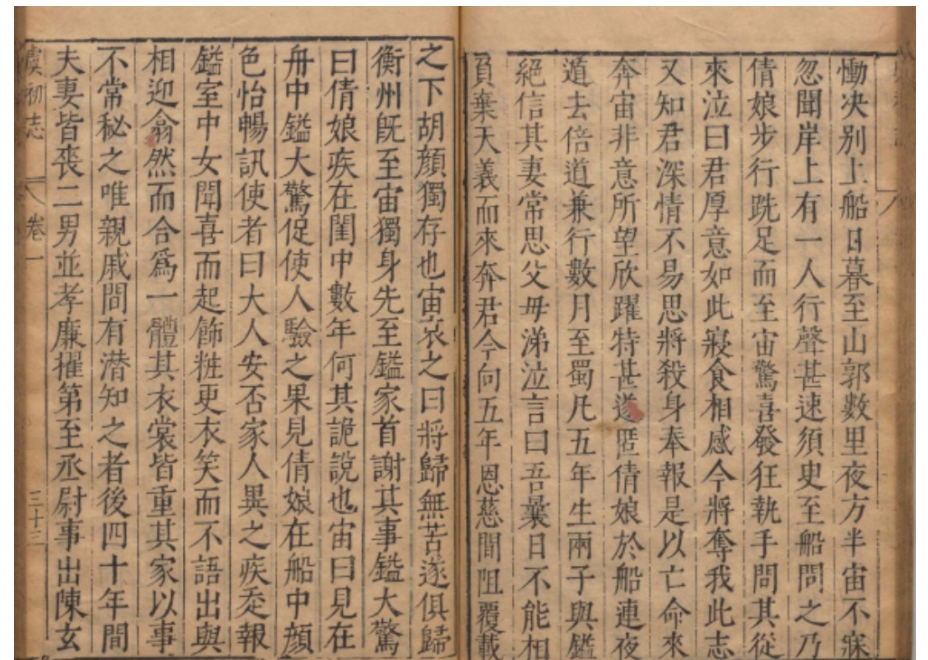 慟决别上船日暮至山郭數里夜方半宙不寐
忽聞岸上有一人行聲甚速須㬰至船問之乃
倩娘步行跣足而至宙驚喜發狂執手問其從
來泣曰君厚意如此寢食相感今將奪我此志
又知君深情不易思將殺身奉報是以亡命來
奔宙非意所望欣躍特甚遂匿倩娘於船連夜
道去倍道兼行數月至蜀凡五年生兩子與鎰
絶信其妻常思父母涕泣言曰吾曩日不能相
負棄大義而來奔君今向五年恩慈間阻覆載
之下胡顔獨存也宙哀之曰將歸無苦遂俱歸
衡州旣至宙獨身先至鎰家首謝其事鎰大驚
曰倩娘疾在閨中數年何其詭說也宙曰見在
舟中鎰大驚促使人驗之果見倩娘在船中顔
色怡暢訊使者曰大人安否家人異之疾走報
鎰室中女聞喜而起飾粧更衣笑而不語出與
相迎翕然而合爲一體其衣裳皆重其家以事
不常秘之唯親戚間有潜知之者後四十年間
夫妻皆喪二男並孝廉擢第至丞尉事出陳玄
虞初志 卷一 三十三